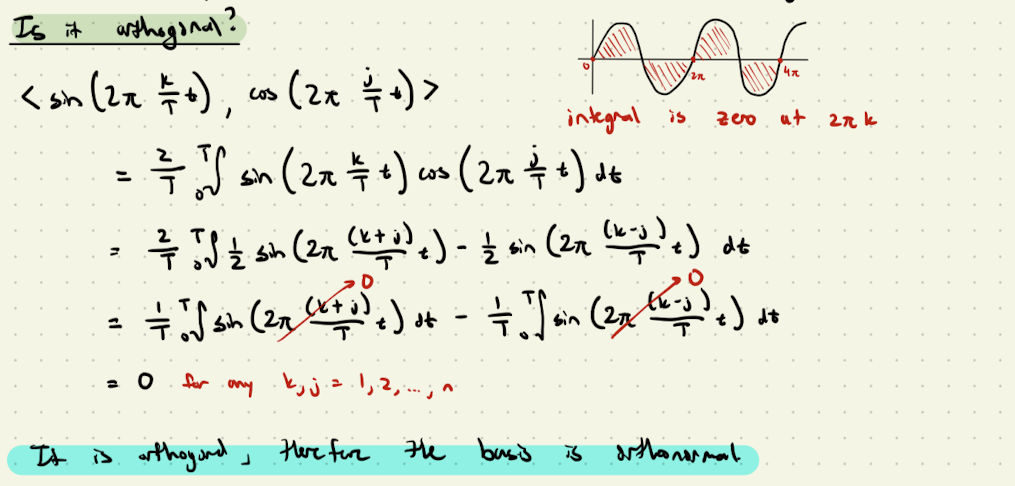 Is it orthogonal?
< sin (2π k/T t), cos (2π j/T t) >
0 2π 4π
integral is zero at 2π k
= 2/T ₀∫ᵀ sin (2π k/T t) cos (2π j/T t) dt
= 2/T ₀∫ᵀ 1/2 sin (2π (k+j)/T t) - 1/2 sin (2π (k-j)/T t) dt
0 0
= 1/T ₀∫ᵀ sin (2π (k+j)/T t) dt - 1/T ₀∫ᵀ sin (2π (k-j)/T t) dt
= 0 for any k,j = 1,2,...,n
It is orthogonal, therefore the basis is orthonormal